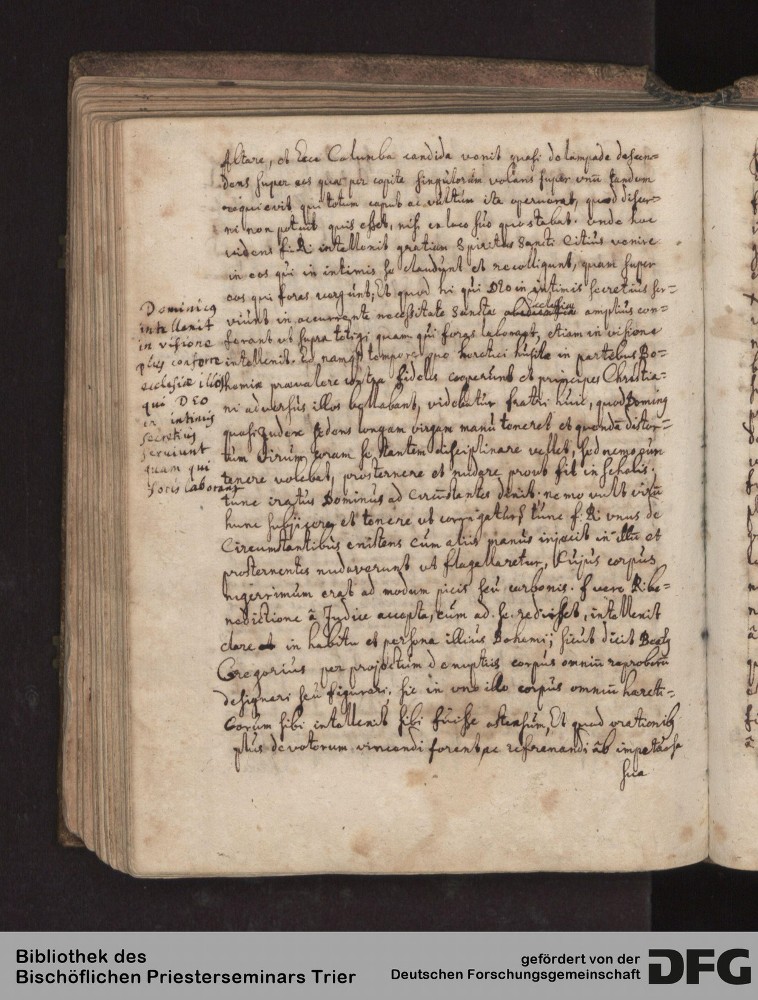 Altare, et Ecce Columba candida venit quasi de lampade descen=
dens super eos quae per capita singulorum volans super unū tandem
requievit qui totum caput ac vultum ita operuerat, quod discer=
ni non potuit quis esset, nisi ex loco suo quo stabat. unde hoc
videns f. Ri intellexit gratiam Spiritus Sancti Citius venire
in eos qui in intimis se claudunt et recolligunt, quam super
eos qui foras vergunt; Et quod hi qui DEO in intimis secretius ser=
viunt in occurrente necessitate Sancta Ecclesiae amplius con=
ferant ut supra tetigi quam qui foras laborant, etiam in visione
intellexit. Eo namque tempore quo haeretici in partibus Bo=
hemiae praevalere contra fideles coeperunt et principes Christia=
ni adversus illos bellabant, videbatur fratri huic, quod Dominus
quasi Judex sedens longam virgam manu teneret et quendā distor=
tum virum coram se stantem disciplinare vellet, sed nemo eum
tenere volebat, prosternere et nudare prout fit in scholis.
tunc iratus Dominus ad circumstantes dixit. nemo vult virū
hunc subjicere et tenere ut corrigatur? tunc f. Ri unus de
Circumstantibus existens cum aliis manus injecit in illū et
prosternentes nudaverunt ut flagellaretur, Cujus corpus
nigerrimum erat ad modum picis seu carbonis. f vero Ri be=
nedictione â Judice accepta, cum ad se redisset, intellexit
clare in habitu et persona illius Bohemi; sicut dicit Beatus
Gregorius per projectum de nuptiis corpus omniū reproborū
designari seu figurari; sic in uno illo corpus omniū haereti=
corum sibi intellexit sibi fuisse ostensum, Et quod orationibus
plus devotorum vincendi forent, ac refrenandi âb impetuosa
sua
Dominicus
intellexit
in visione
plus conferre
ecclesiae illos
qui DEO
in intimis
secretius
serviunt
quam qui
foris laborant
Bibliothek des
Bischöflichen Priesterseminars Trier
gefördert von der
Deutschen Forschungsgemeinschaft
DFG